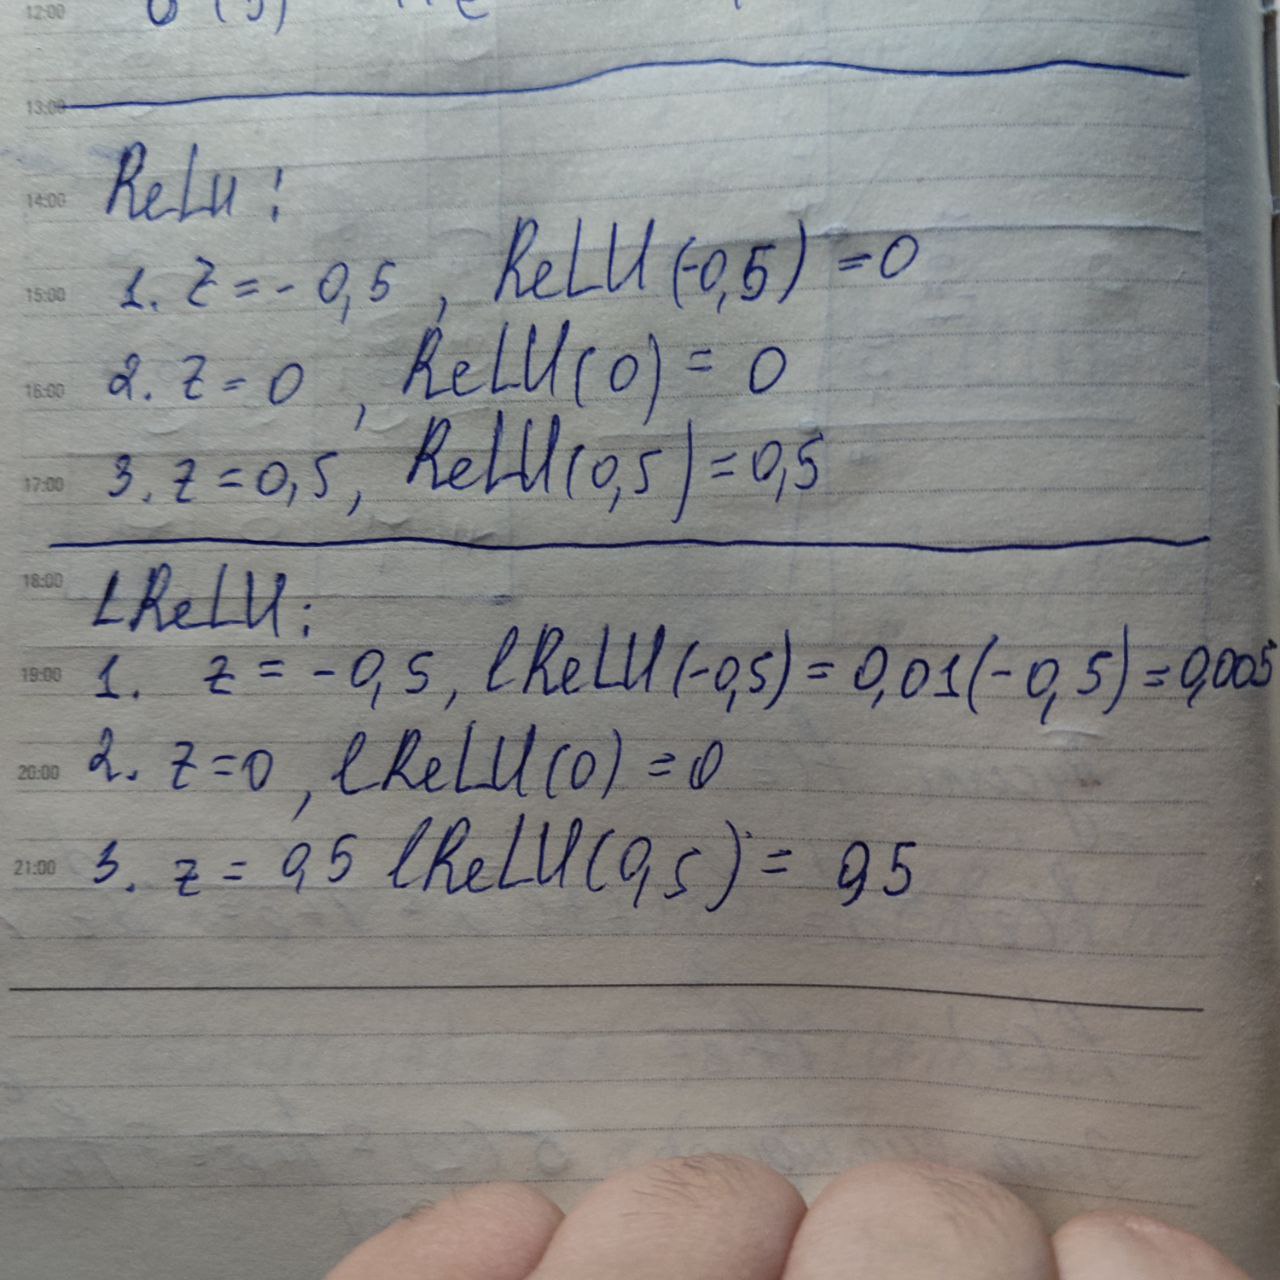 12:00
13:00
ReLu:
14:00
15:00 1. z = - 0,5 , ReLU(-0,5) = 0
16:00 2. z = 0 , ReLU(0) = 0
17:00 3. z = 0,5, ReLU(0,5) = 0,5
18:00
LReLU:
19:00 1. z = -0,5, lReLU(-0,5) = 0,01(-0,5) = 0,005
20:00 2. z = 0 , lReLU(0) = 0
21:00 3. z = 0,5 lReLU(0,5) = 0,5